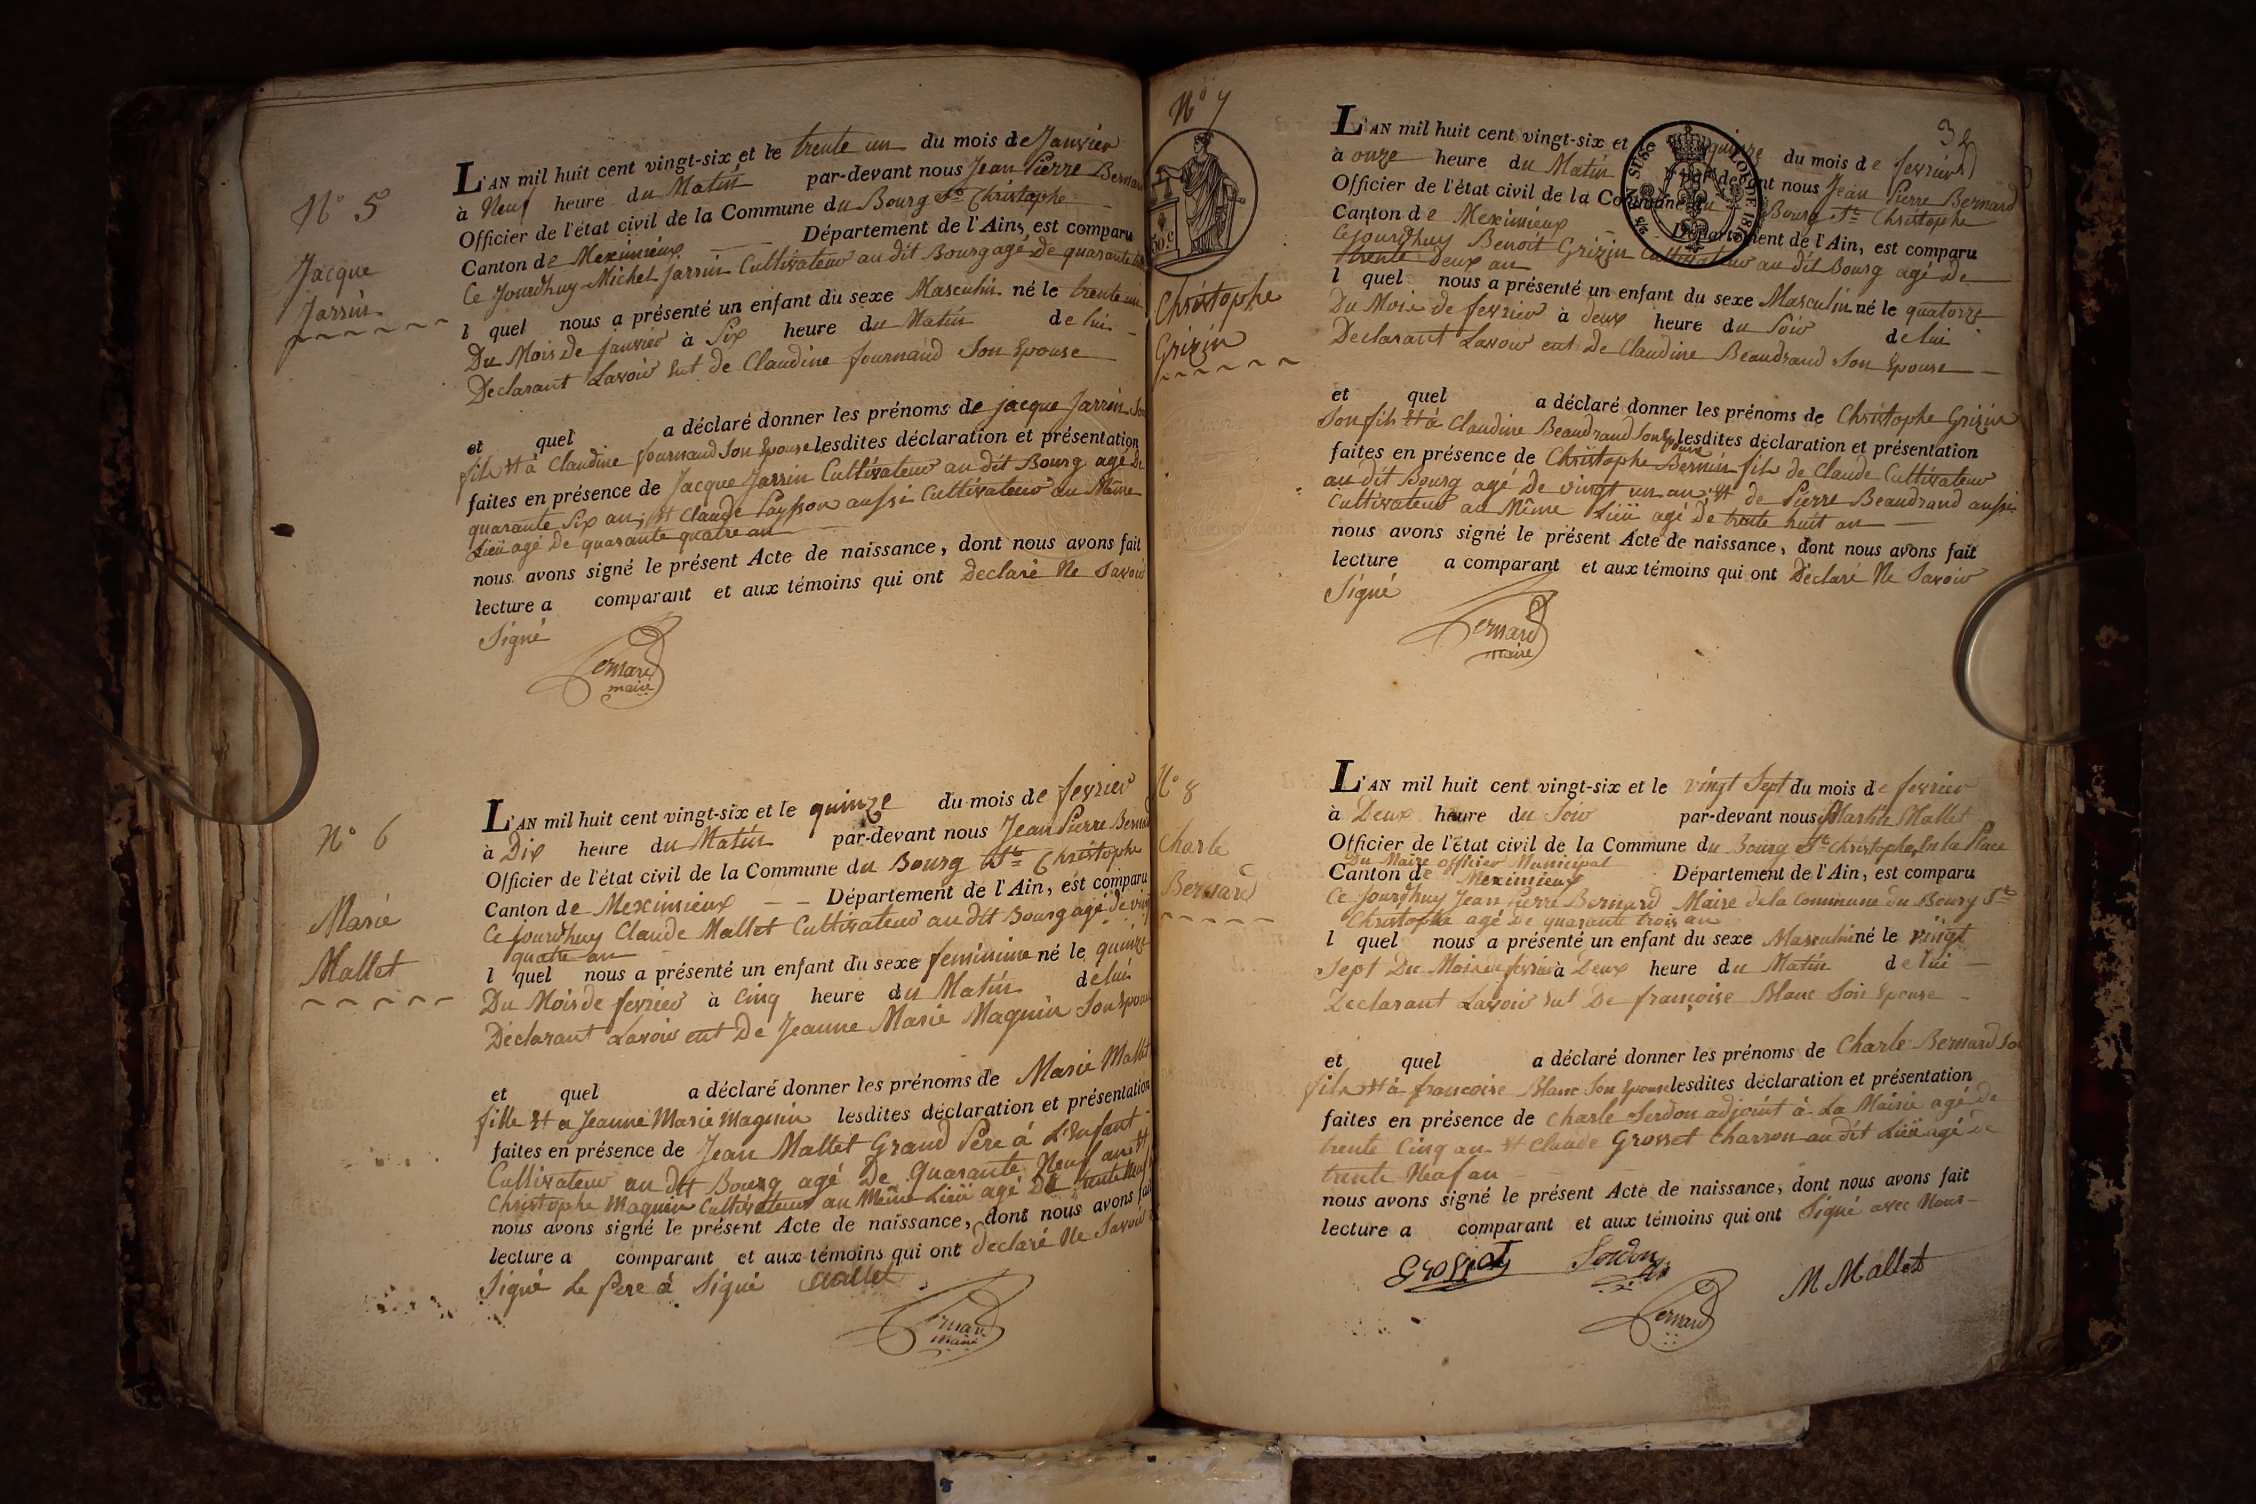 N° 5
Jacque
Jarrin
L'AN mil huit cent vingt-six et le trente un du mois de Janvier
à Neuf heure du Matin par-devant nous Jean Pierre Bernard
Officier de l'état civil de la Commune du Bourg St Christophe
Canton de Meximieux Département de l'Ain, est comparu
Ce Jourdhuy Michel Jarrin Cultivateur au dit Bourg agé de quarante
l quel nous a présenté un enfant du sexe Masculin né le trente un
Du Mois de Janvier à Six heure du Matin de lui
Declarant Lavoir Eut de Claudine fournand Son Epouse
et quel a déclaré donner les prénoms de jacque Jarrin Son
fils Et à Claudine fournand Son Epouse lesdites déclaration et présentation
faites en présence de Jacque Jarrin Cultivateur au dit Bourg agé De
quarante Six an, Et Claude Paysson aussi Cultivateur au Même
Lieü agé De quarante quatre an
nous avons signé le présent Acte de naissance, dont nous avons fait
lecture a comparant et aux témoins qui ont Declaré Ne Savoir
Signé
Bernard
maire
N° 6
Marie
Mallet
L'AN mil huit cent vingt-six et le quinze du mois de fevrier
à Dix heure du Matin par-devant nous Jean Pierre Bernard
Officier de l'état civil de la Commune du Bourg St Christophe
Canton de Meximieux Département de l'Ain, est comparu
Ce Jourdhuy Claude Mallet Cultivateur au dit Bourg agé de vingt
quatre an
l quel nous a présenté un enfant du sexe feminime né le quinze
Du Mois de fevrier à Cinq heure du Matin de lui
Déclarant Lavoir eut De Jeanne Marie Magnin Son Epouse
et quel a déclaré donner les prénoms de Marie Mallet
fille Et a Jeanne Marie Magnin lesdites déclaration et présentation
faites en présence de Jean Mallet Grand Père à L'Enfant
Cultivateur au dit Bourg agé De Quarante Neuf an Et
Christophe Magnin Cultivateur au Même Lieü agé De trente Neuf
nous avons signé le présent Acte de naissance, dont nous avons fait
lecture a comparant et aux témoins qui ont declaré Ne Savoir
Signé Le Pere à Signé Mallet
Bernard
maire
N° 7
Christophe
Grizin
32
L'AN mil huit cent vingt-six et quinze du mois de fevrier
à onze heure du Matin par-devant nous Jean Pierre Bernard
Officier de l'état civil de la Commune du Bourg St Christophe
Canton de Meximieux Département de l'Ain, est comparu
Cejourdhuy Benoit Grizin Cultivateur au dit Bourg agé De
trente Deux an
l quel nous a présenté un enfant du sexe Masculin né le quatorze
Du Mois de fevrier à deux heure du Soir de lui
Declarant Lavoir eut De Claudine Beaudrand Son Epouse
et quel a déclaré donner les prénoms de Christophe Grizin
Son fils Et à Claudine Beaudrand Son Epouse lesdites déclaration et présentation
faites en présence de Christophe Bernin fils de Claude Cultivateur
au dit Bourg agé De vingt un an, Et de Pierre Beaudrand aussi
Cultivateur au Même Lieü agé De trente huit an
nous avons signé le présent Acte de naissance, dont nous avons fait
lecture a comparant et aux témoins qui ont Déclaré Ne Savoir
Signé
Bernard
maire
N° 8
Charle
Bernard
L'AN mil huit cent vingt-six et le vingt Sept du mois de fevrier
à Deux heure du Soir par-devant nous Martin Mallet
Officier de l'état civil de la Commune du Bourg St Christophe, En la Place
Du Maire officier Municipal
Canton de Meximieux Département de l'Ain, est comparu
Ce Jourdhuy Jean Pierre Bernard Maire de la Commune du Bourg St
Christophe agé De quarante trois an
l quel nous a présenté un enfant du sexe Masculin né le vingt
Sept Du Mois de fevrier à Deux heure du Matin de lui
Declarant Lavoir Eut De françoise Blanc Son Epouse
et quel a déclaré donner les prénoms de Charle Bernard Son
fils Et à françoise Blanc Son Epouse lesdites déclaration et présentation
faites en présence de Charle Serdon adjoint à La Mairie agé De
trente Cinq an Et Claude Grosset Charron au dit Lieü agé De
trente Neuf an
nous avons signé le présent Acte de naissance, dont nous avons fait
lecture a comparant et aux témoins qui ont Signé avec Nous
Grosset Serdon
Bernard M Mallet